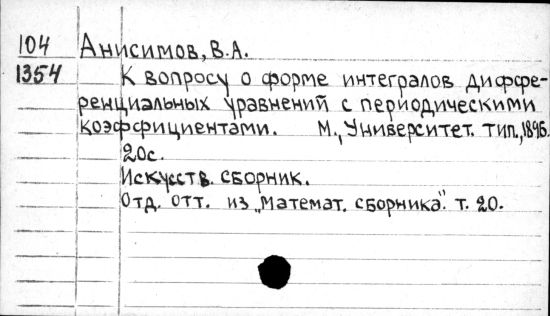 104 Анисимов, В.А.
1354 К вопросу о форме интегралов диффе-
ренциальных уравнений с периодическими
коэффициентами. М., Университет. тип., 1896.
20с.
Искусств. сборник.
Отд. отт. из „Математ. сборника". т. 20.